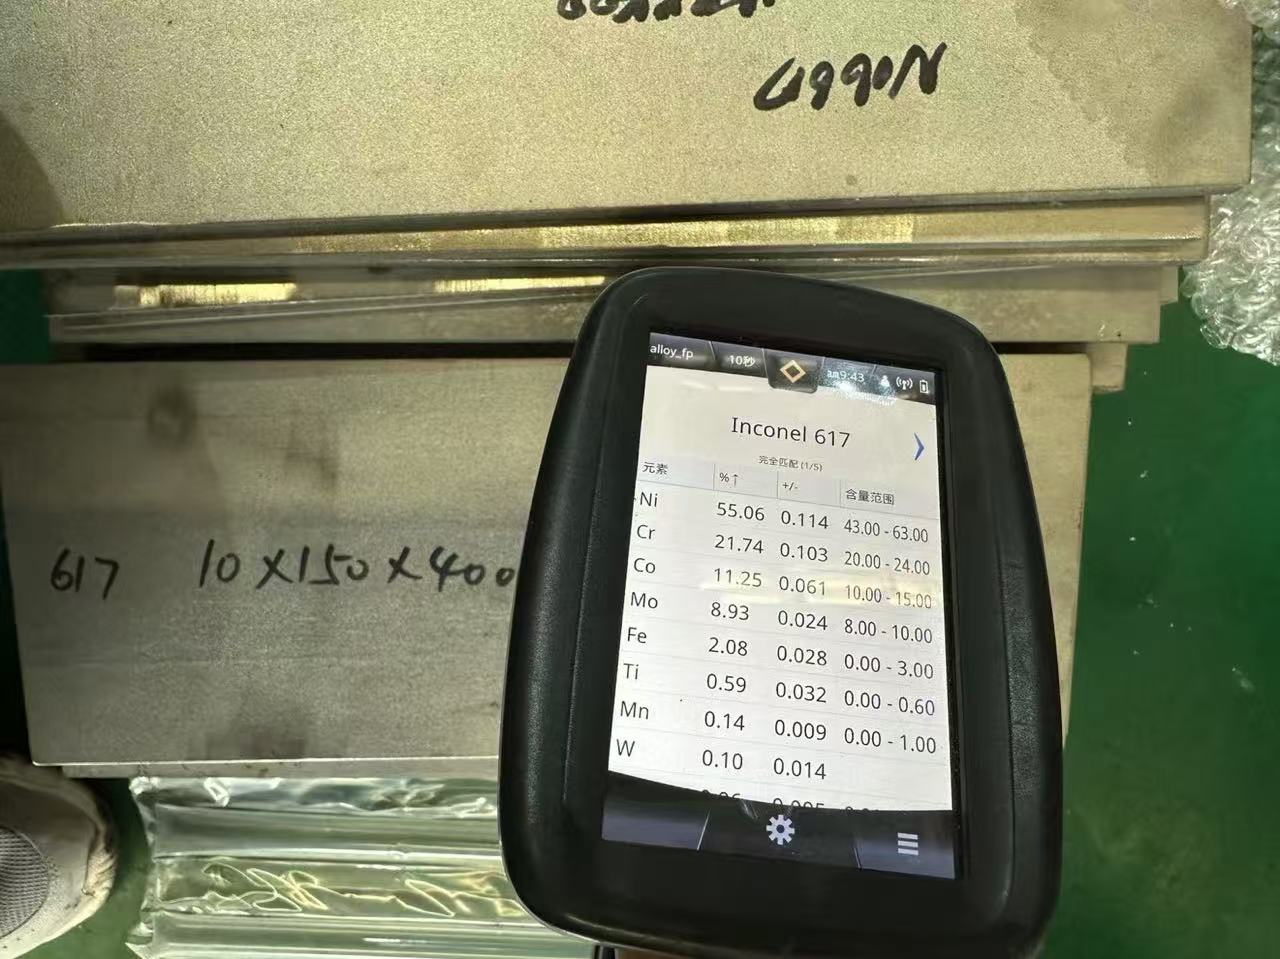 N06617
617 10X150X400
alloy_fp 10秒 am9:43
Inconel 617
完全匹配 (1/5)
元素 %↑ +/- 含量范围
Ni 55.06 0.114 43.00 - 63.00
Cr 21.74 0.103 20.00 - 24.00
Co 11.25 0.061 10.00 - 15.00
Mo 8.93 0.024 8.00 - 10.00
Fe 2.08 0.028 0.00 - 3.00
Ti 0.59 0.032 0.00 - 0.60
Mn 0.14 0.009 0.00 - 1.00
W 0.10 0.014